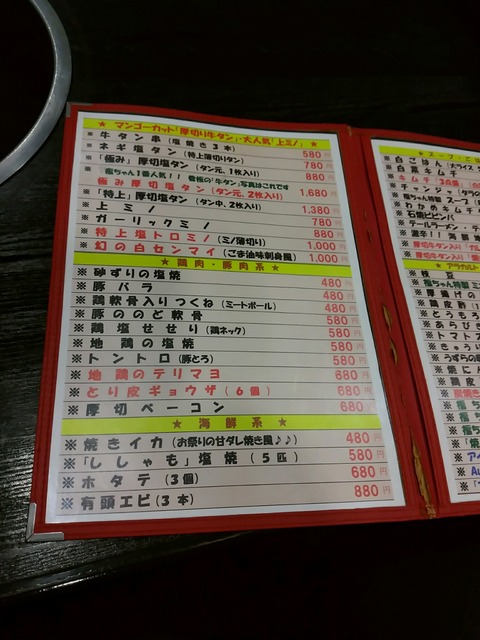 ★ マンゴーカット「厚切り牛タン」・大人気「上ミノ」 ★
※ 牛タン串（塩焼き3本） 580円
※ ネギ塩タン（特上薄切りタン） 780円
※ 「極み」厚切塩タン（タン元、1枚入り） 880円
※ 福ちゃん1番人気！！ 看板の「牛タン」写真はこれです
極み厚切塩タン（タン元、2枚入り） 1,680円
※ 「特上」厚切塩タン（タン中、2枚入り） 1,380円
※ 上ミノ 780円
※ ガーリックミノ 880円
※ 特上塩トロミノ（ミノ薄切り） 1,000円
※ 幻の白センマイ（ごま油味刺身風） 1,000円
★ 鶏肉・豚肉系 ★
※ 砂ずりの塩焼 480円
※ 豚バラ 480円
※ 鶏軟骨入りつくね（ミートボール） 480円
※ 豚ののど軟骨 580円
※ 鶏塩せせり（鶏ネック） 580円
※ 地鶏の塩焼 580円
※ トントロ（豚とろ） 680円
※ 地鶏のテリマヨ 680円
※ とり皮ギョウザ（6個） 680円
※ 厚切ベーコン 680円
★ 海鮮系 ★
※ 焼きイカ（お祭りの甘ダレ焼き風♪♪） 480円
※ 「ししゃも」塩焼（5匹） 580円
※ ホタテ（3個） 680円
※ 有頭エビ（3本） 880円
★ スープ・ごは
※ 白ごはん（大ライス
※ 白菜キムチ
※ キムチ「3点盛」
※ チャンジャ
※ 福ちゃん特製 スープ
※ わかめスープ
※ 石焼ビビンバ
※ テールラーメン・テ
※ 厚切牛タン入り
※ 厚切牛タン入り
★ アラカルト
※ 枝豆
※ 福ちゃん特製
※ 厚揚げの
※ 鶏皮酢
※ とうもろ
※ あらびき
※ トマト
※ きゅうり
※ うずらの
※ 焼にん
※ 鶏皮